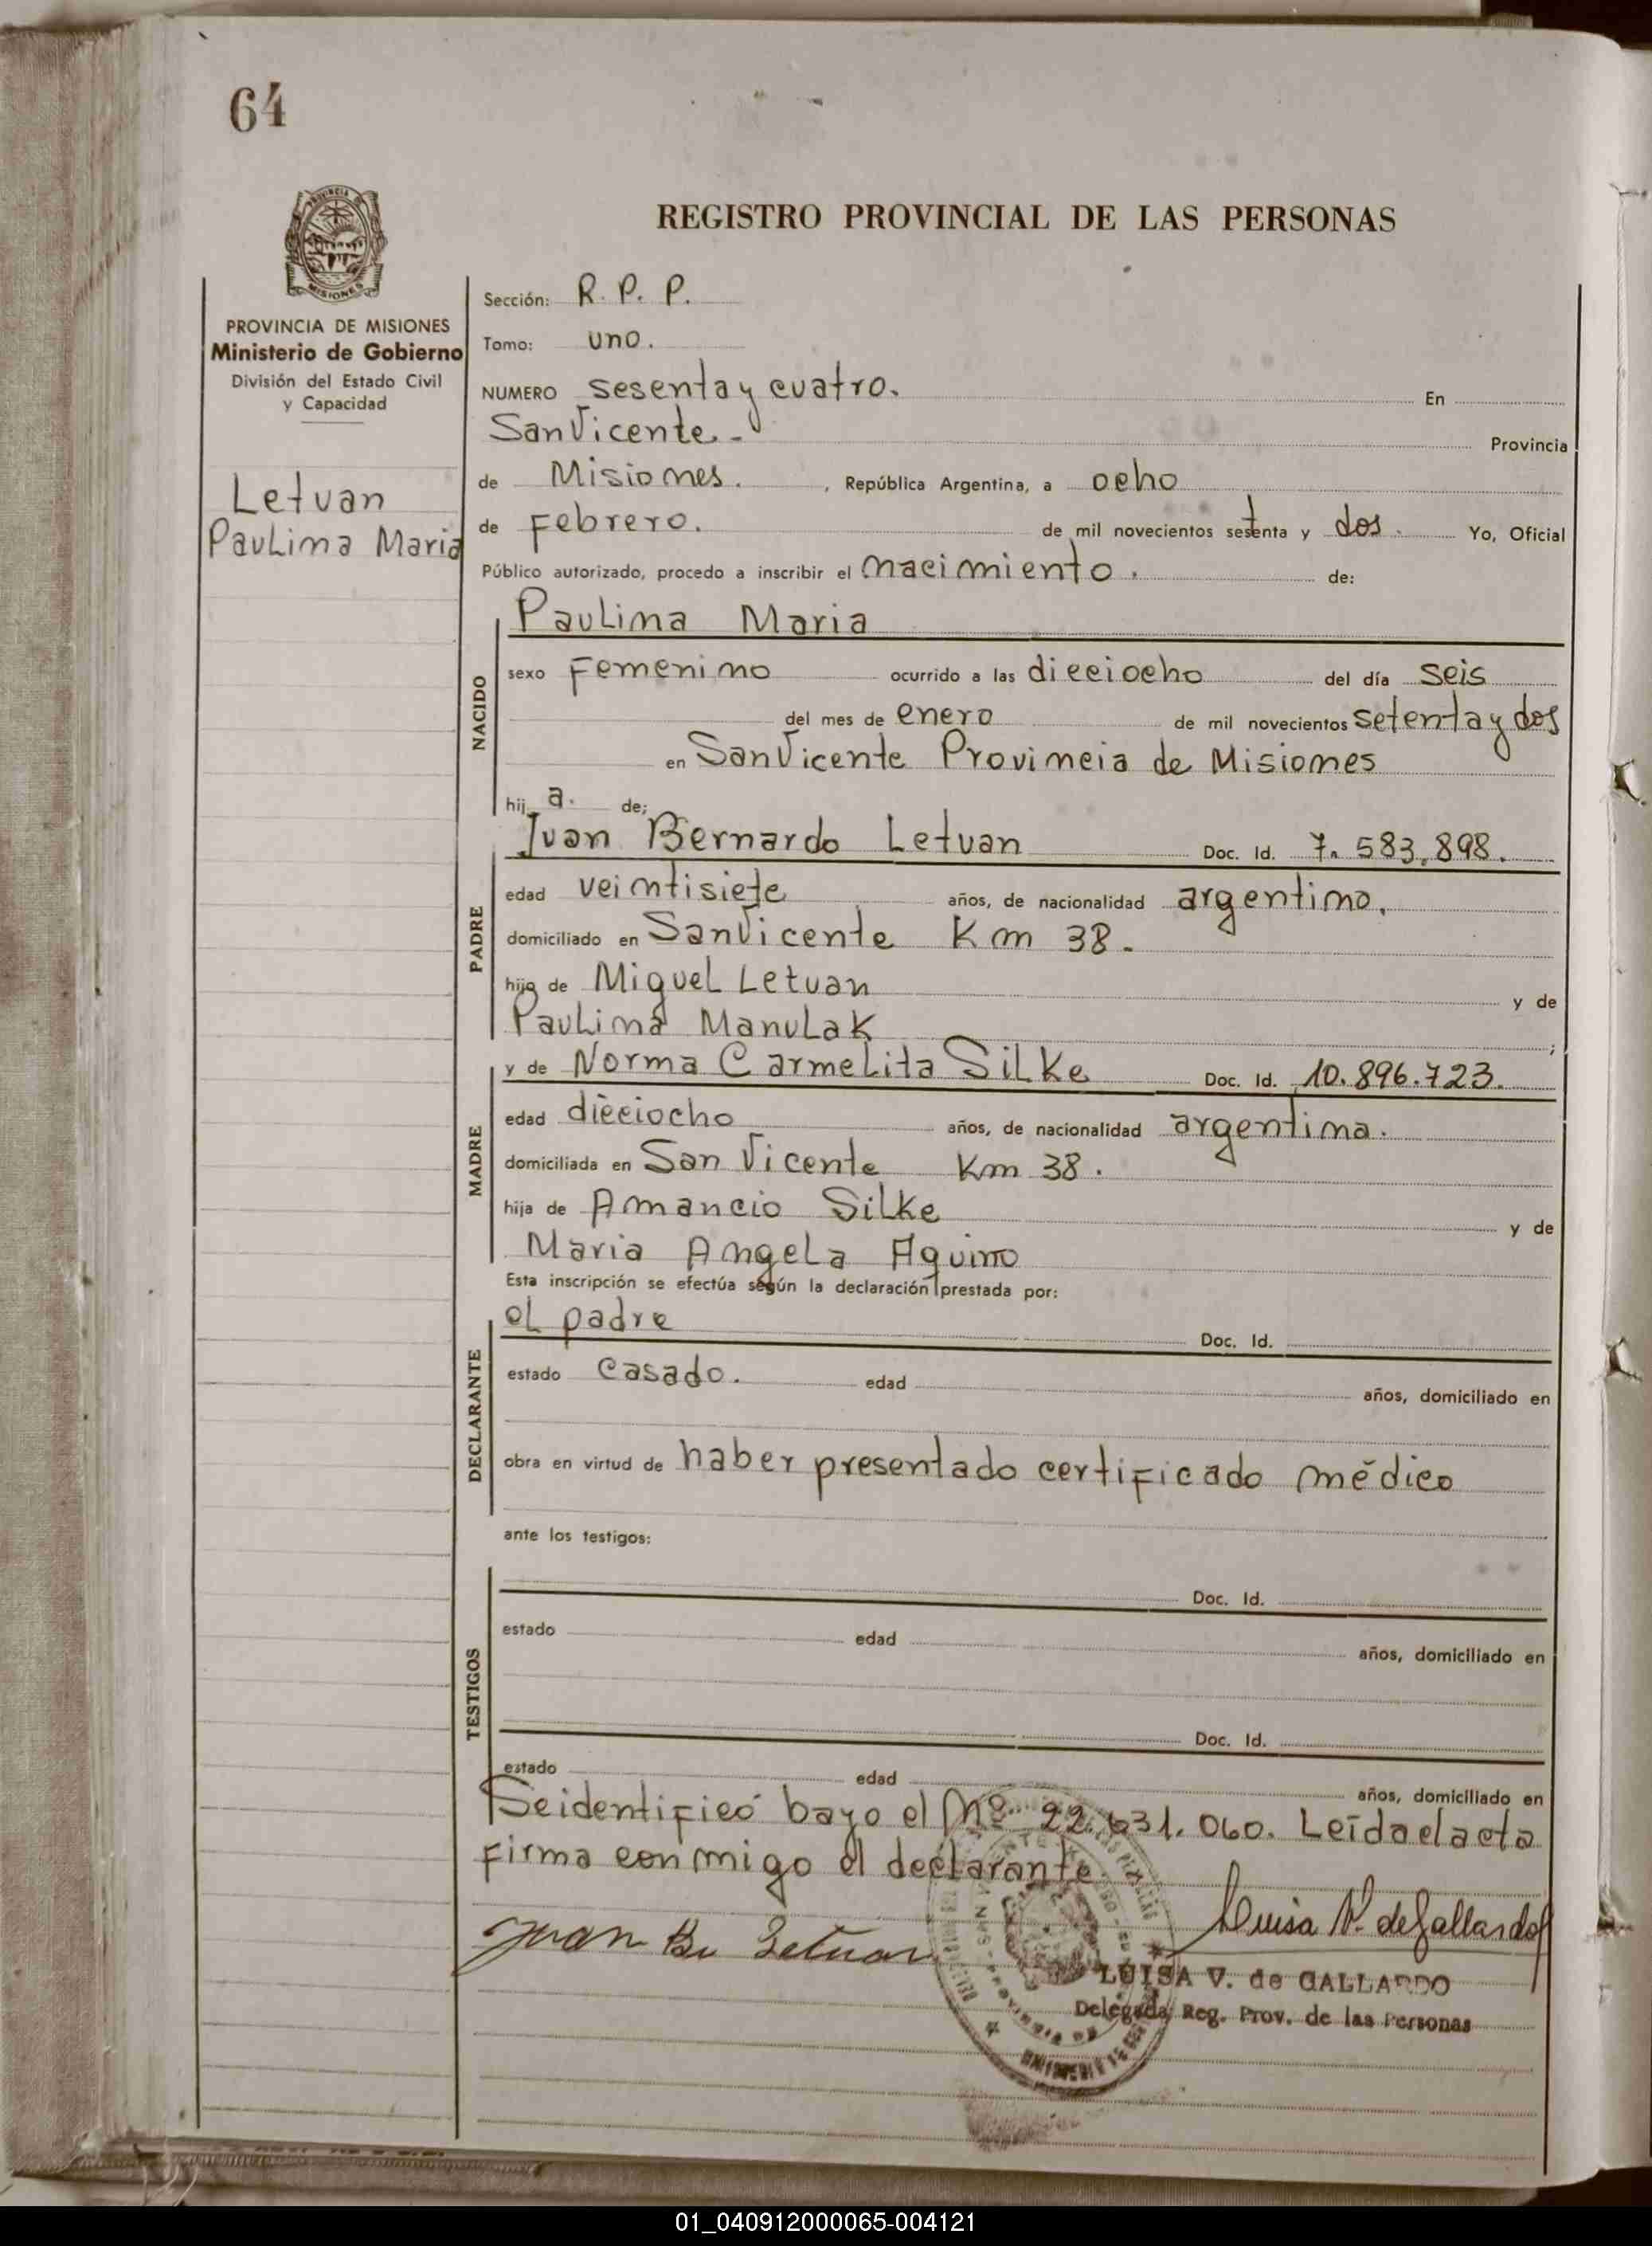 64
PROVINCIA
MISIONES
REGISTRO PROVINCIAL DE LAS PERSONAS
PROVINCIA DE MISIONES
Ministerio de Gobierno
División del Estado Civil
y Capacidad
Letuan
Paulina Maria
Sección: R. P. P.
Tomo: uno.
NUMERO sesenta y cuatro. En
San Vicente.- Provincia
de Misiones. , República Argentina, a ocho
de Febrero. de mil novecientos setenta y dos. Yo, Oficial
Público autorizado, procedo a inscribir el nacimiento. de:
NACIDO
Paulina Maria
sexo Femenino ocurrido a las dieciocho del día seis
del mes de enero de mil novecientos setenta y dos
en San Vicente Provincia de Misiones
hij a. de;
PADRE
Juan Bernardo Letuan Doc. Id. 7.583.898.
edad veintisiete años, de nacionalidad argentino.
domiciliado en San Vicente Km 38.-
hijo de Miguel Letuan y de
Paulina Manulak ;
MADRE
y de Norma Carmelita Silke Doc. Id. 10.896.723.
edad dieciocho años, de nacionalidad argentina.
domiciliada en San Vicente Km 38.
hija de Amancio Silke y de
Maria Angela Aquino
Esta inscripción se efectúa según la declaración prestada por:
DECLARANTE
el padre Doc. Id.
estado casado. edad años, domiciliado en
obra en virtud de haber presentado certificado médico
ante los testigos:
TESTIGOS
Doc. Id.
estado edad años, domiciliado en
Doc. Id.
estado edad años, domiciliado en
Se identificó bayo el Nº 22.631.060. Leída el acta
firma conmigo el declarante
Juan Be Letuan
Luisa V. de Gallardo
LUISA V. de GALLARDO
Delegada Reg. Prov. de las Personas
01_040912000065-004121